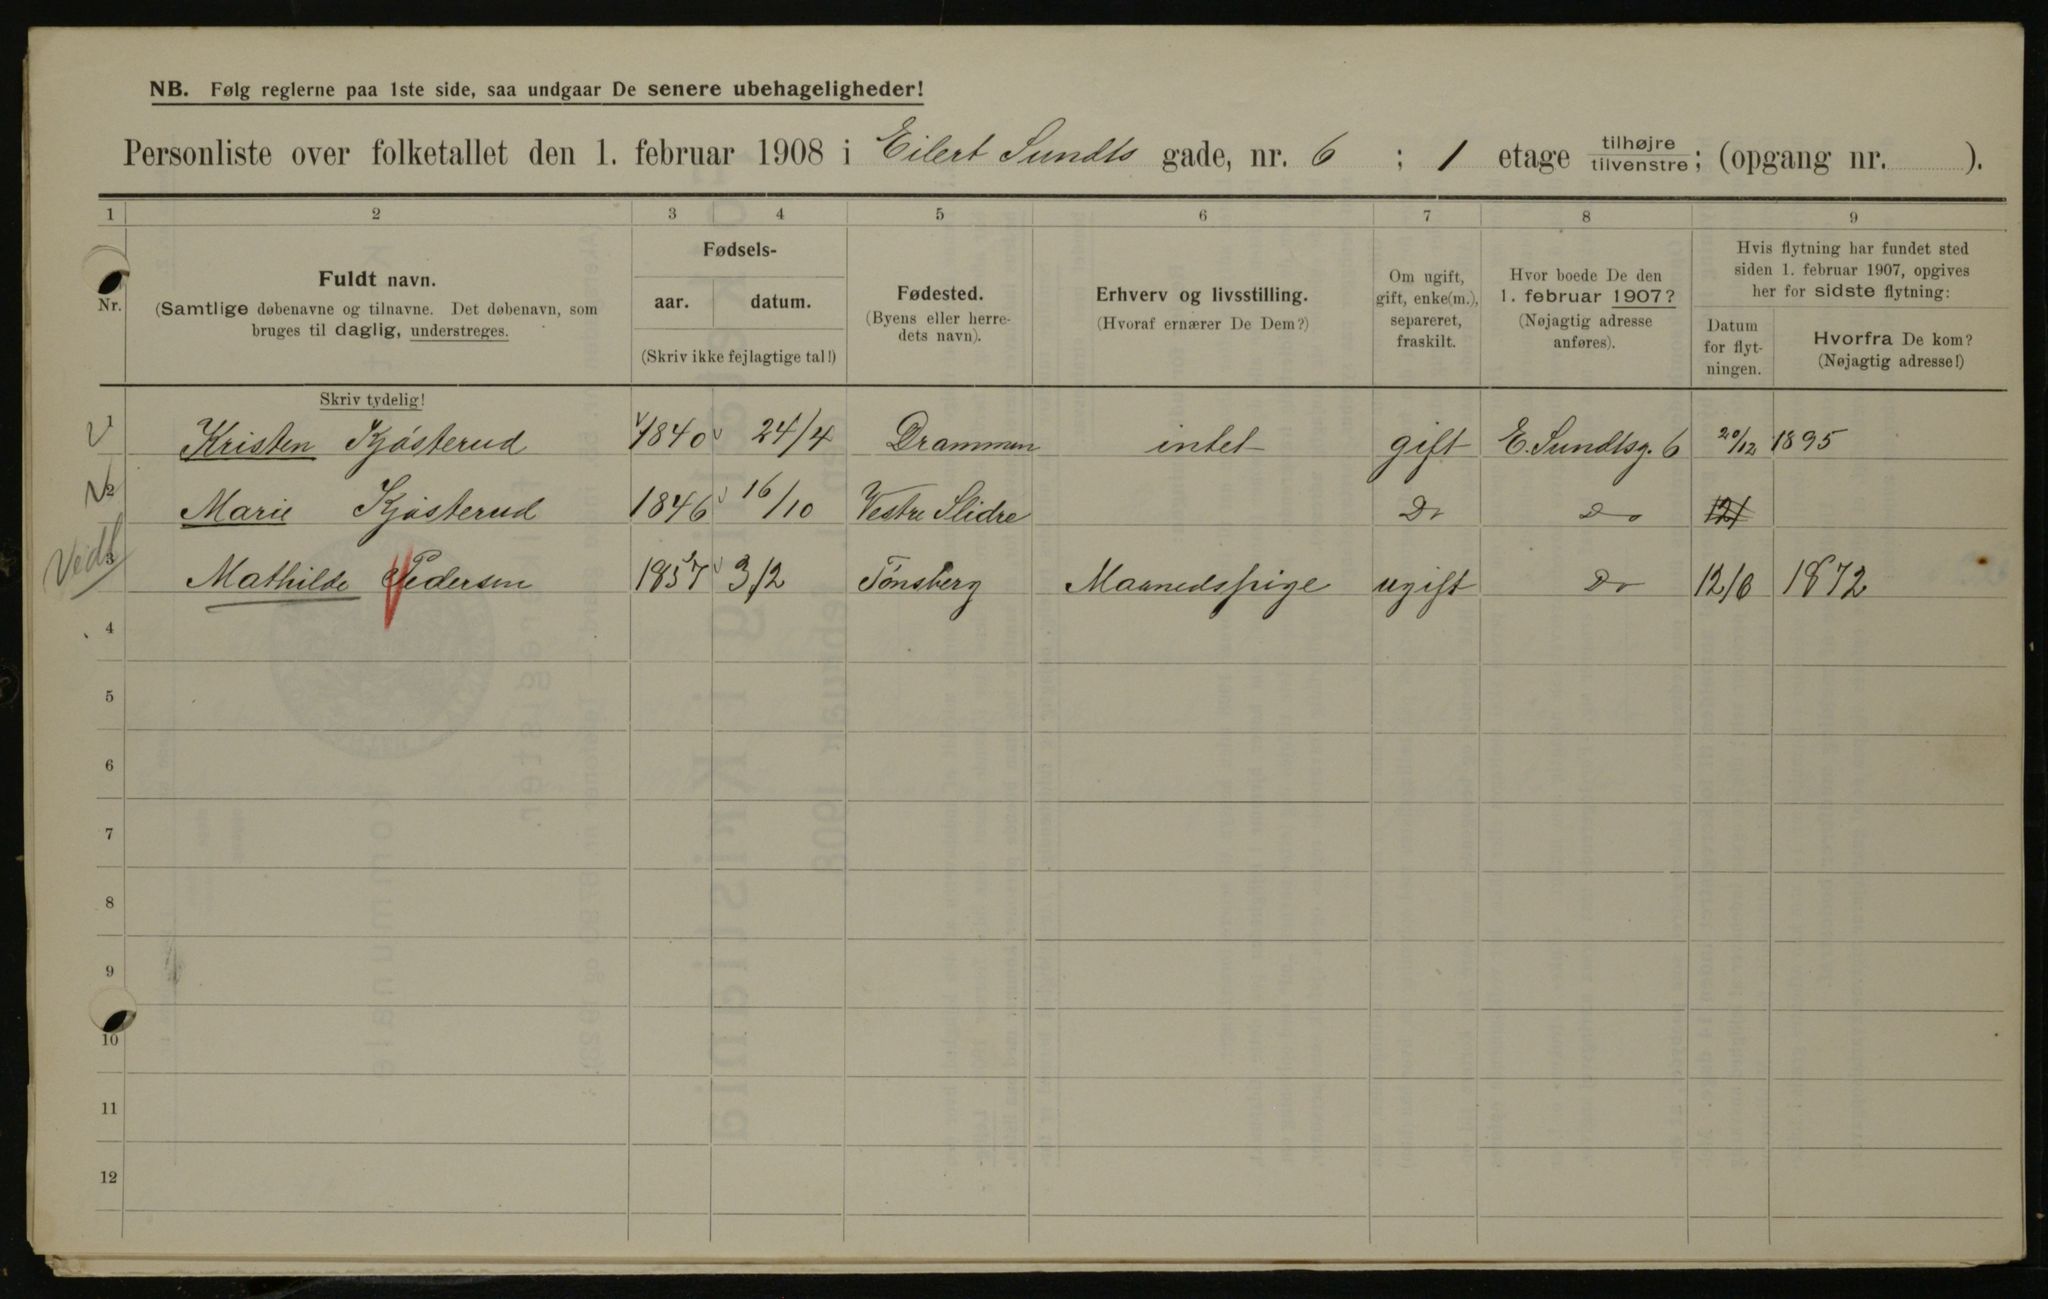 NB. Følg reglerne paa 1ste side, saa undgaar De senere ubehageligheder!
Personliste over folketallet den 1. februar 1908 i Eilert Sundts gade, nr. 6 ; 1 etage tilhøjre tilvenstre; (opgang nr. ).
1 2 3 4 5 6 7 8 9
Nr.
Fuldt navn.
(Samtlige døbenavne og tilnavne. Det døbenavn, som
bruges til daglig, understreges.
Skriv tydelig!
Fødsels-
aar. datum.
(Skriv ikke fejlagtige tal!)
Fødested.
(Byens eller herre-
dets navn).
Erhverv og livsstilling.
(Hvoraf ernærer De Dem?)
Om ugift,
gift, enke(m.),
separeret,
fraskilt.
Hvor boede De den
1. februar 1907?
(Nøjagtig adresse
anføres).
Hvis flytning har fundet sted
siden 1. februar 1907, opgives
her for sidste flytning:
Datum
for flyt-
ningen.
Hvorfra De kom?
(Nøjagtig adresse!)
1 Kristen Kjøsterud 1840 24/4 Drammen intet gift E. Sundtsg. 6 20/12 1895
2 Marie Kjøsterud 1846 16/10 Vestre Slidre Do Do 12/
3 Mathilde Pedersen 1857 3/2 Tönsberg Maanedspige ugift Do 12/6 1872
4
5
6
7
8
9
10
11
12